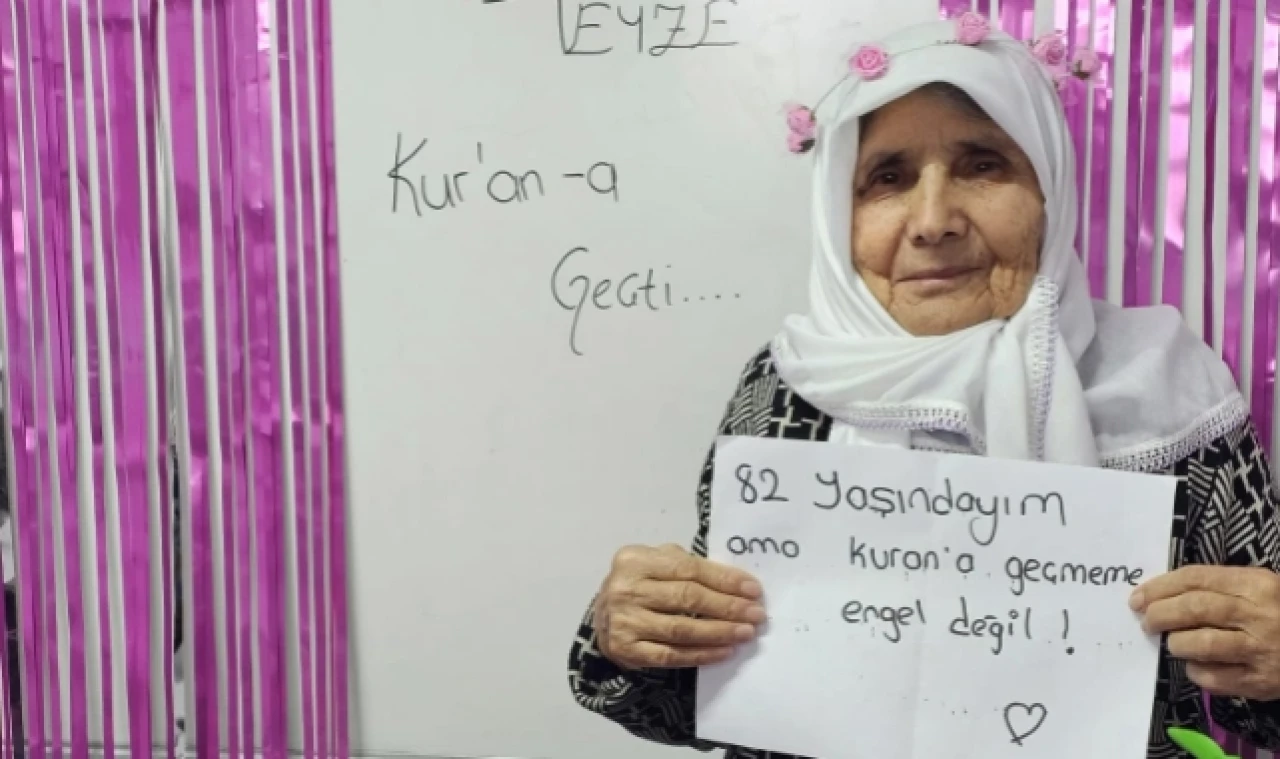 TEYZE
Kur'an-a
Geçti....
82 Yaşındayım
ama kuran'a geçmeme
engel değil !